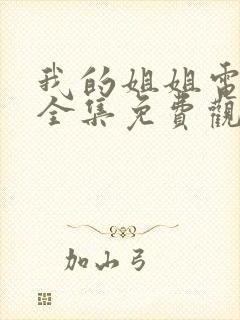 我的姐姐電
全集免費觀
加山弓